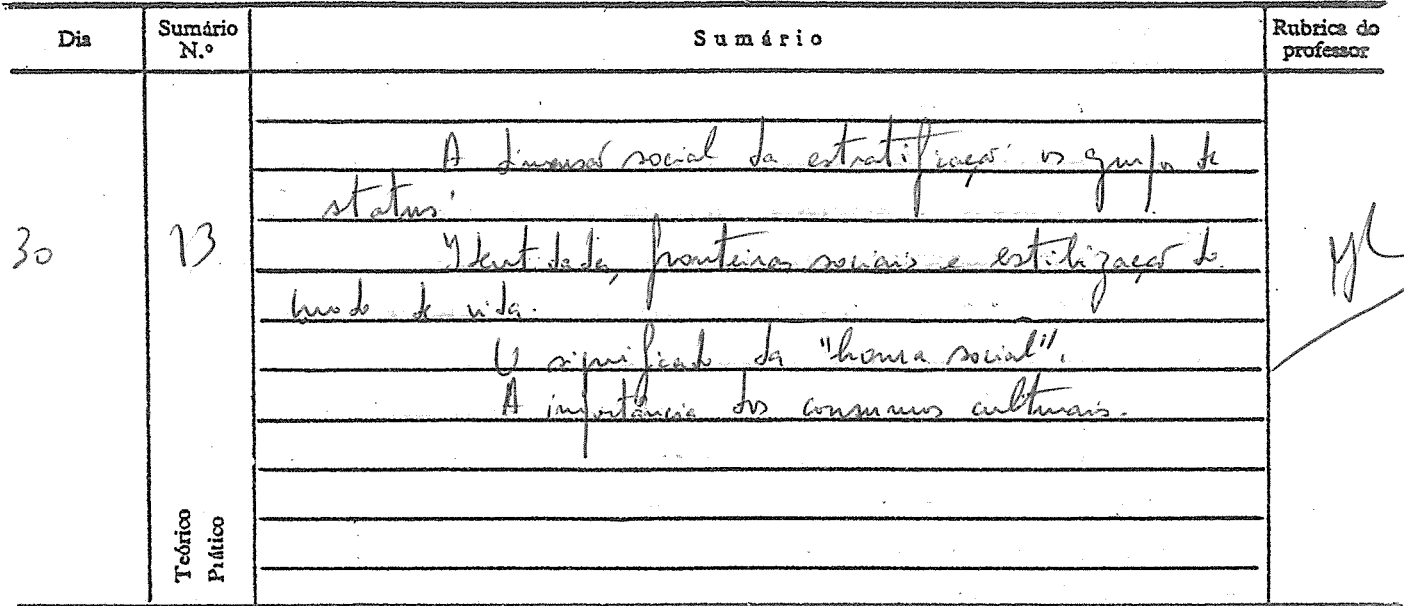 Dia Sumário N.º Sumário Rubrica do professor
A dimensão social da estratificação: os grupos de
status.
30 13 Identidade, fronteiras sociais e estilização do
modo de vida.
O significado da "honra social".
A importância dos consumos culturais.
Teórico
Prático